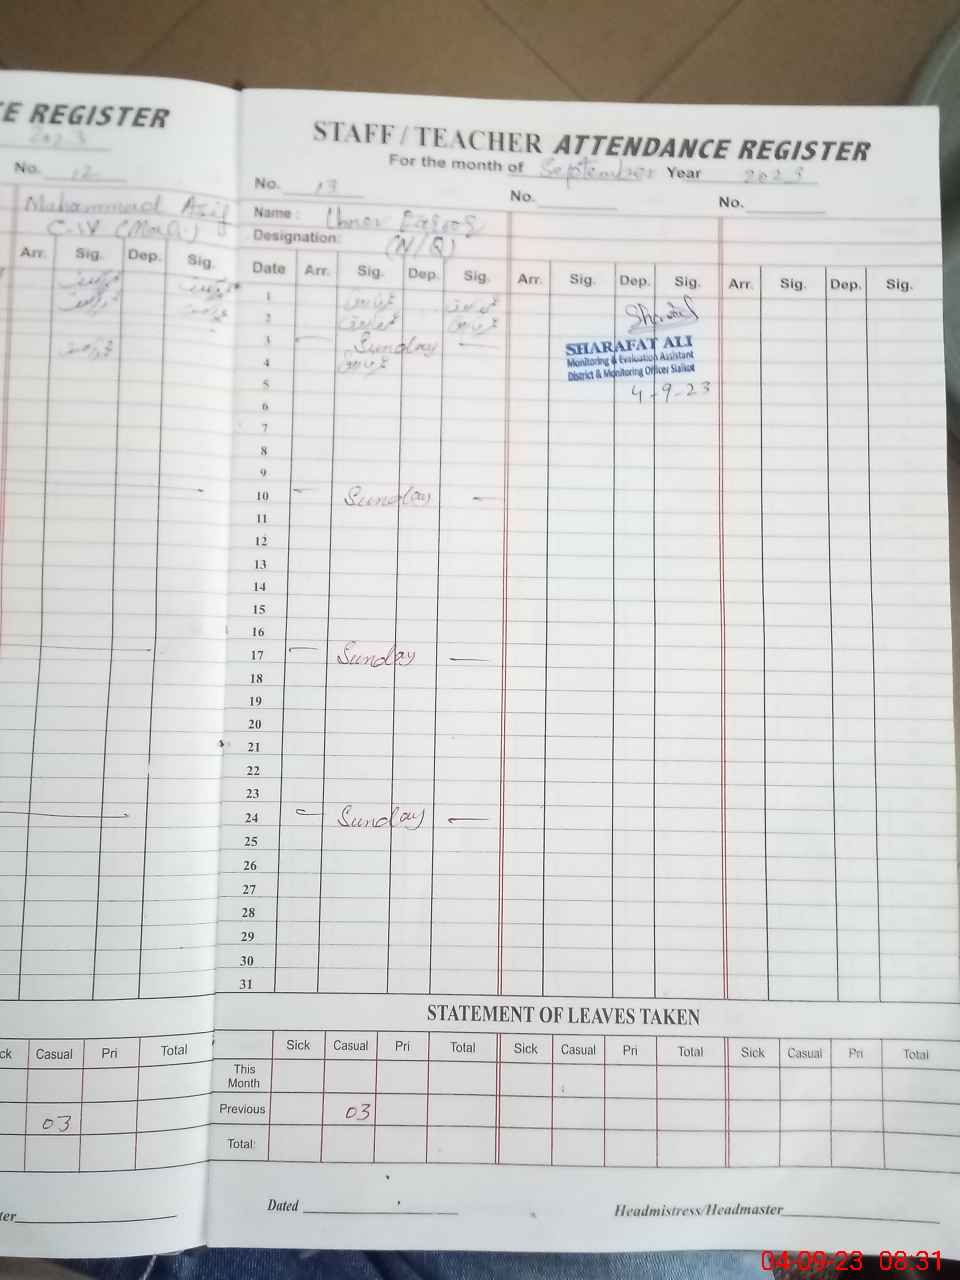 CE REGISTER
2023
No. 12
Muhammad Asif
C-IV
Arr. Sig. Dep. Sig.
STAFF / TEACHER ATTENDANCE REGISTER
For the month of September Year 2023
No. 13 No. No.
Name : Umer Farooq
Designation: (N/Q)
Date Arr. Sig. Dep. Sig. Arr. Sig. Dep. Sig. Arr. Sig. Dep. Sig.
1 عمر فاروق عمر فاروق
2 عمر فاروق عمر فاروق
3 — Sunday —
4 عمر فاروق
Sharafat
SHARAFAT ALI
Monitoring & Evaluation Assistant
District & Monitoring Officer Sialkot
4-9-23
5
6
7
8
9
10 — Sunday —
11
12
13
14
15
16
17 — Sunday —
18
19
20
21
22
23
24 — Sunday —
25
26
27
28
29
30
31
STATEMENT OF LEAVES TAKEN
ck Casual Pri Total
03
Sick Casual Pri Total Sick Casual Pri Total Sick Casual Pri Total
This Month
Previous 03
Total:
ter
Dated Headmistress/Headmaster
04-09-23 08:31